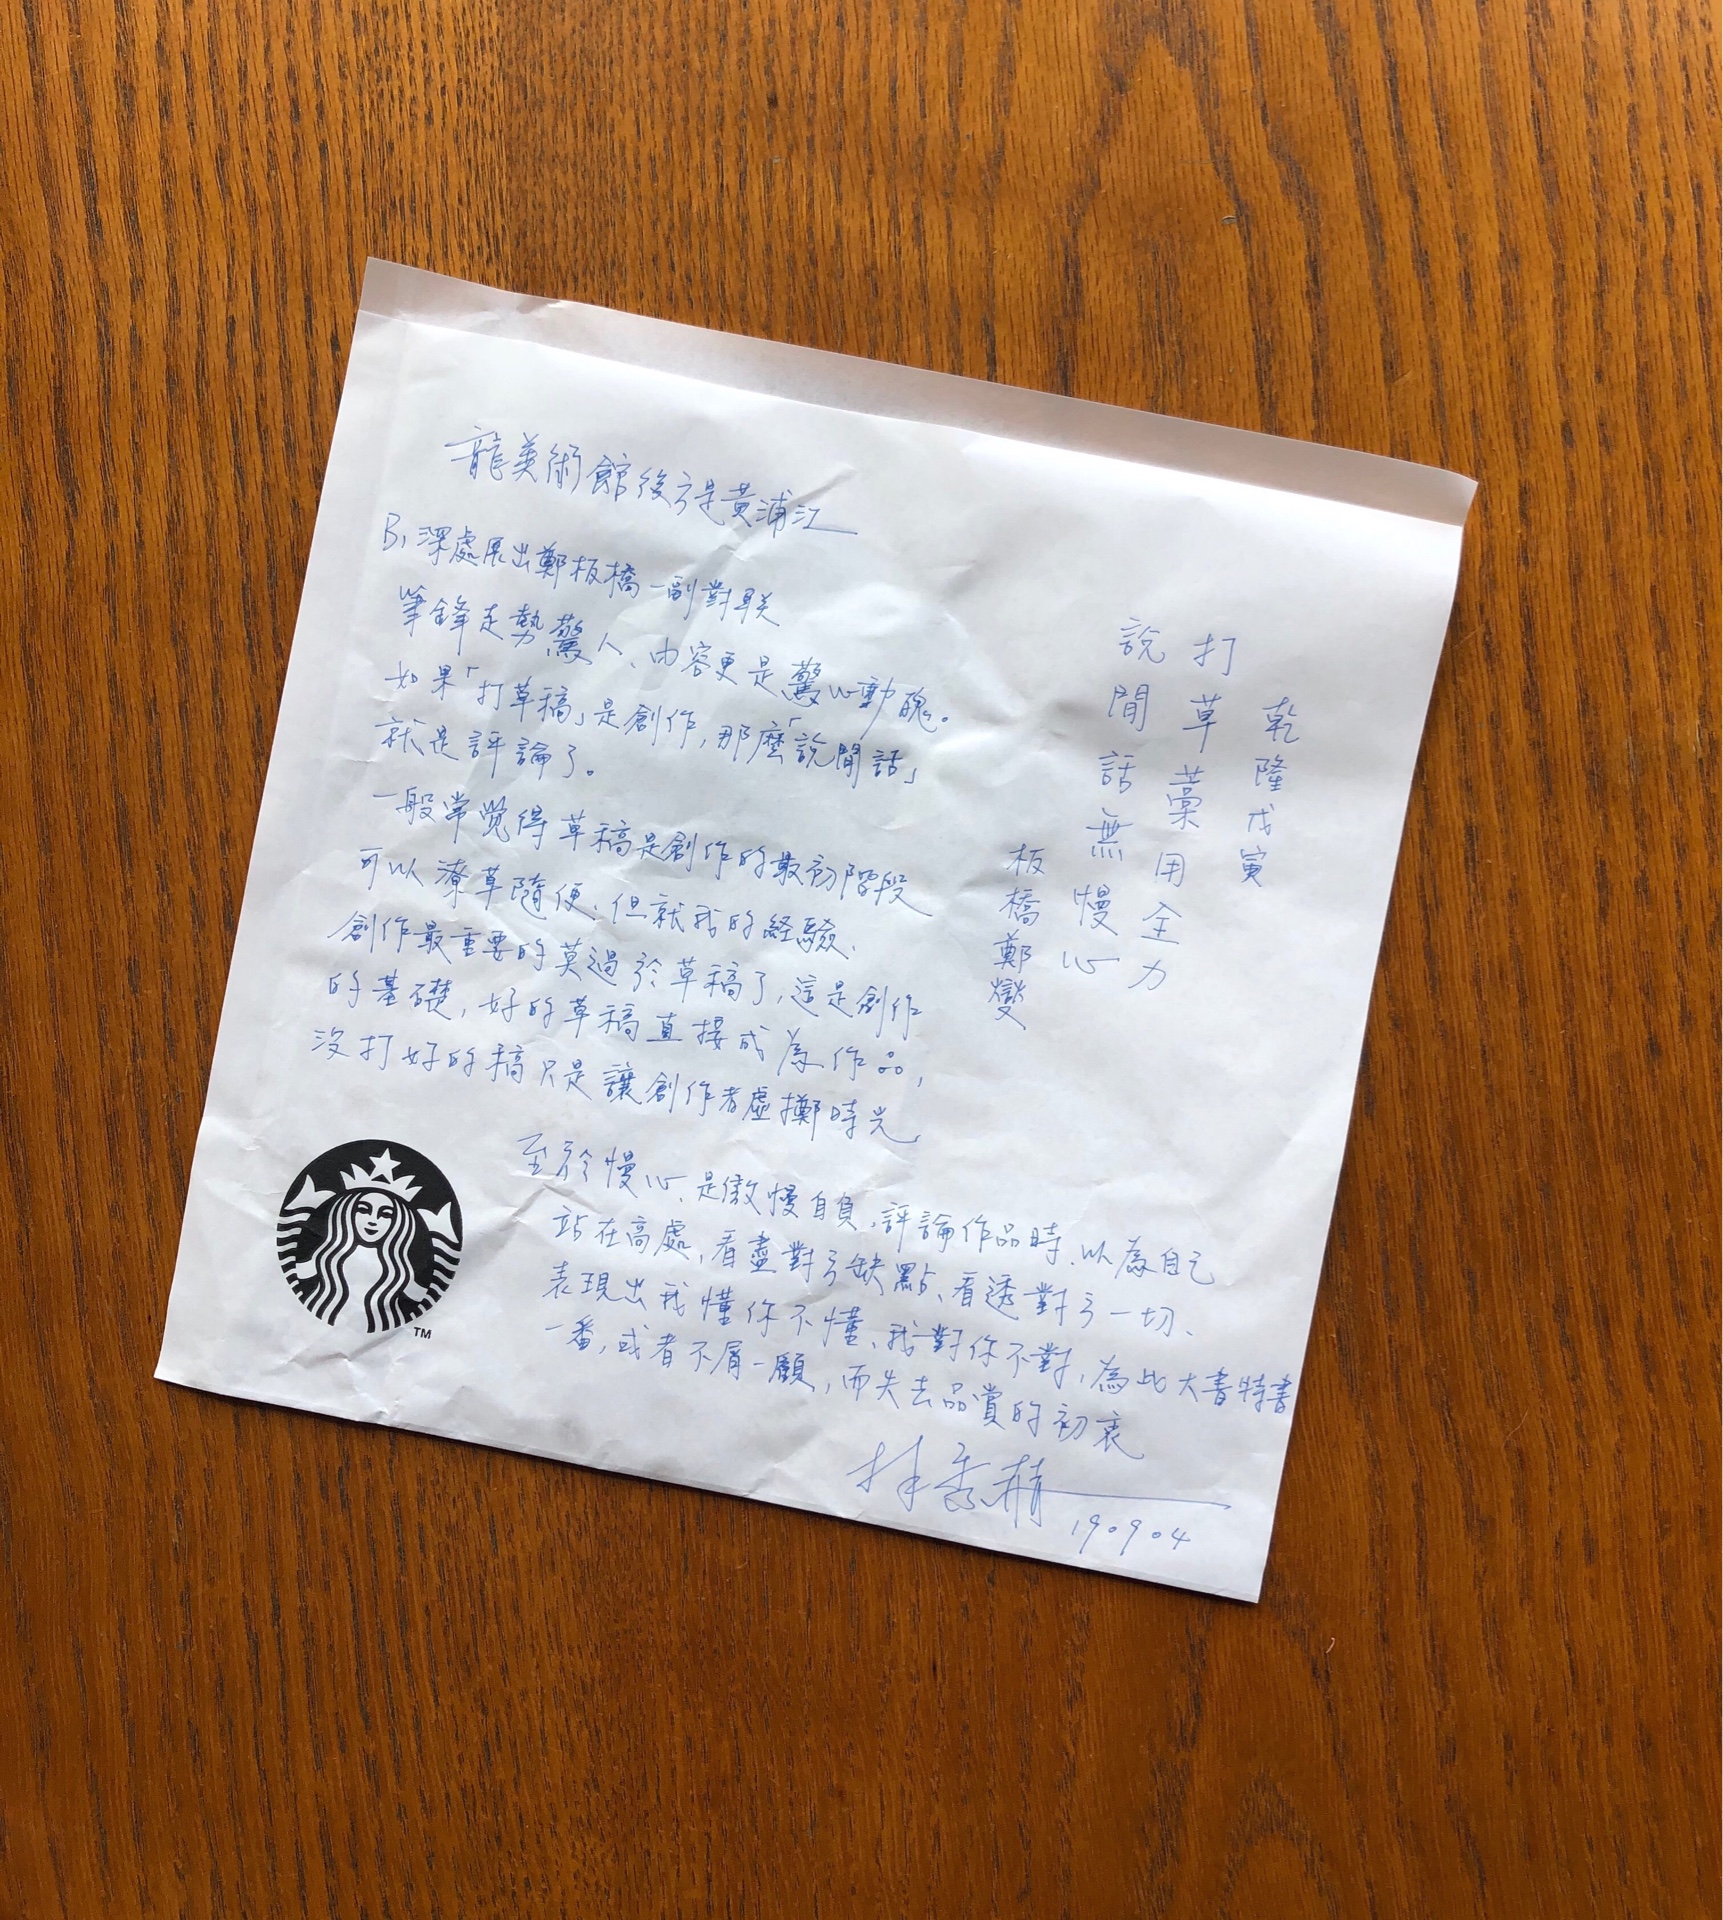 龍美術館後方是黃浦江
B1深處展出鄭板橋一副對联
筆鋒走勢驚人、內容更是驚心動魄。
如果「打草稿」是創作,那麼「說閒話」
就是評論了。
一般常覺得草稿是創作的最初階段
可以潦草隨便、但就我的経驗、
創作最重要的莫過於草稿了,這是創作
的基礎,好的草稿直接成為作品,
沒打好的稿只是讓創作者虛擲時光
至於慢心、是傲慢自負、評論作品時、以為自己
站在高處,看盡對方缺點、看透對方一切、
表現出我懂你不懂、我對你不對,為此大書特書
一番,或者不屑一顧,而失去品賞的初衷
190904
乾隆戊寅
打草藁用全力
說閒話無慢心
板橋鄭燮
TM